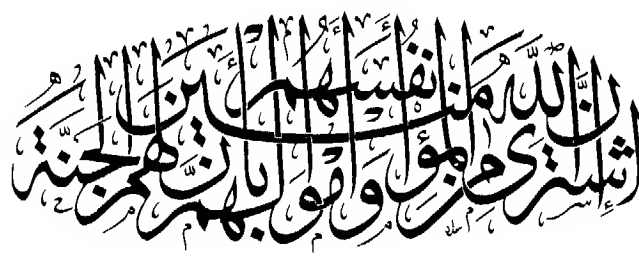 إِنَّ اللَّهَ اشْتَرَىٰ مِنَ الْمُؤْمِنِينَ أَنفُسَهُمْ وَأَمْوَالَهُم بِأَنَّ لَهُمُ الْجَنَّةَ